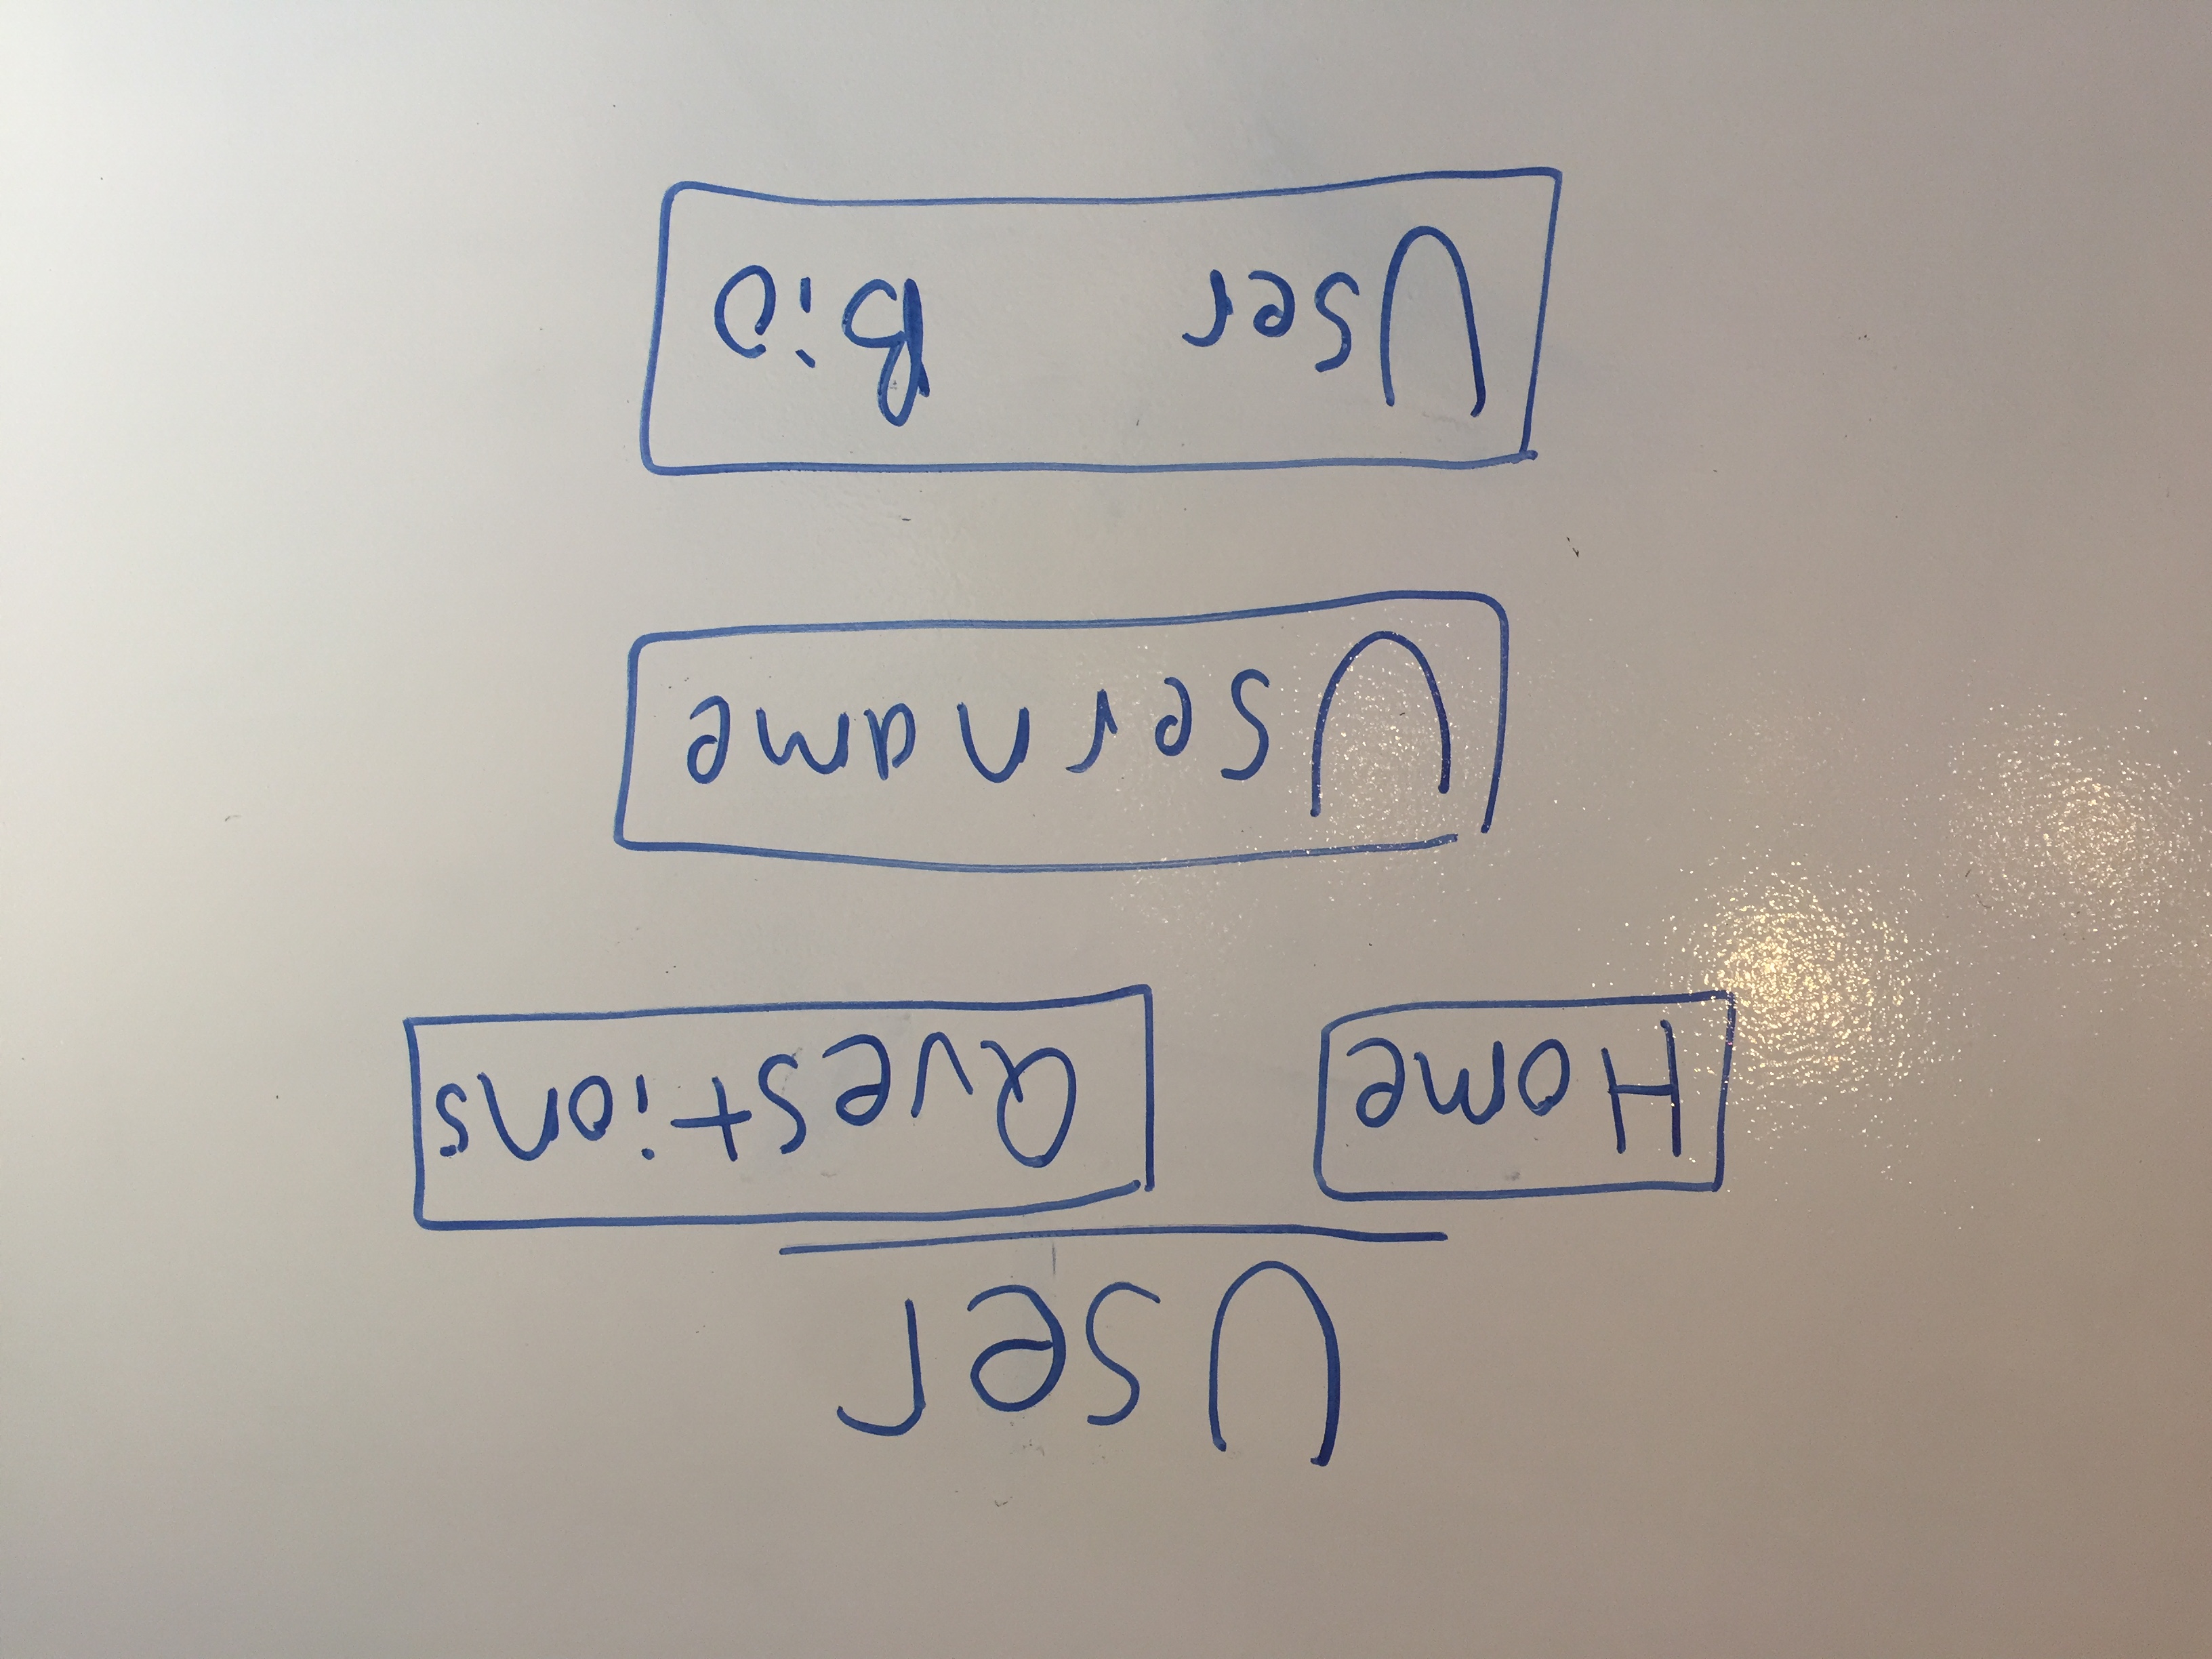 User
Home Questions
Username
User Bio